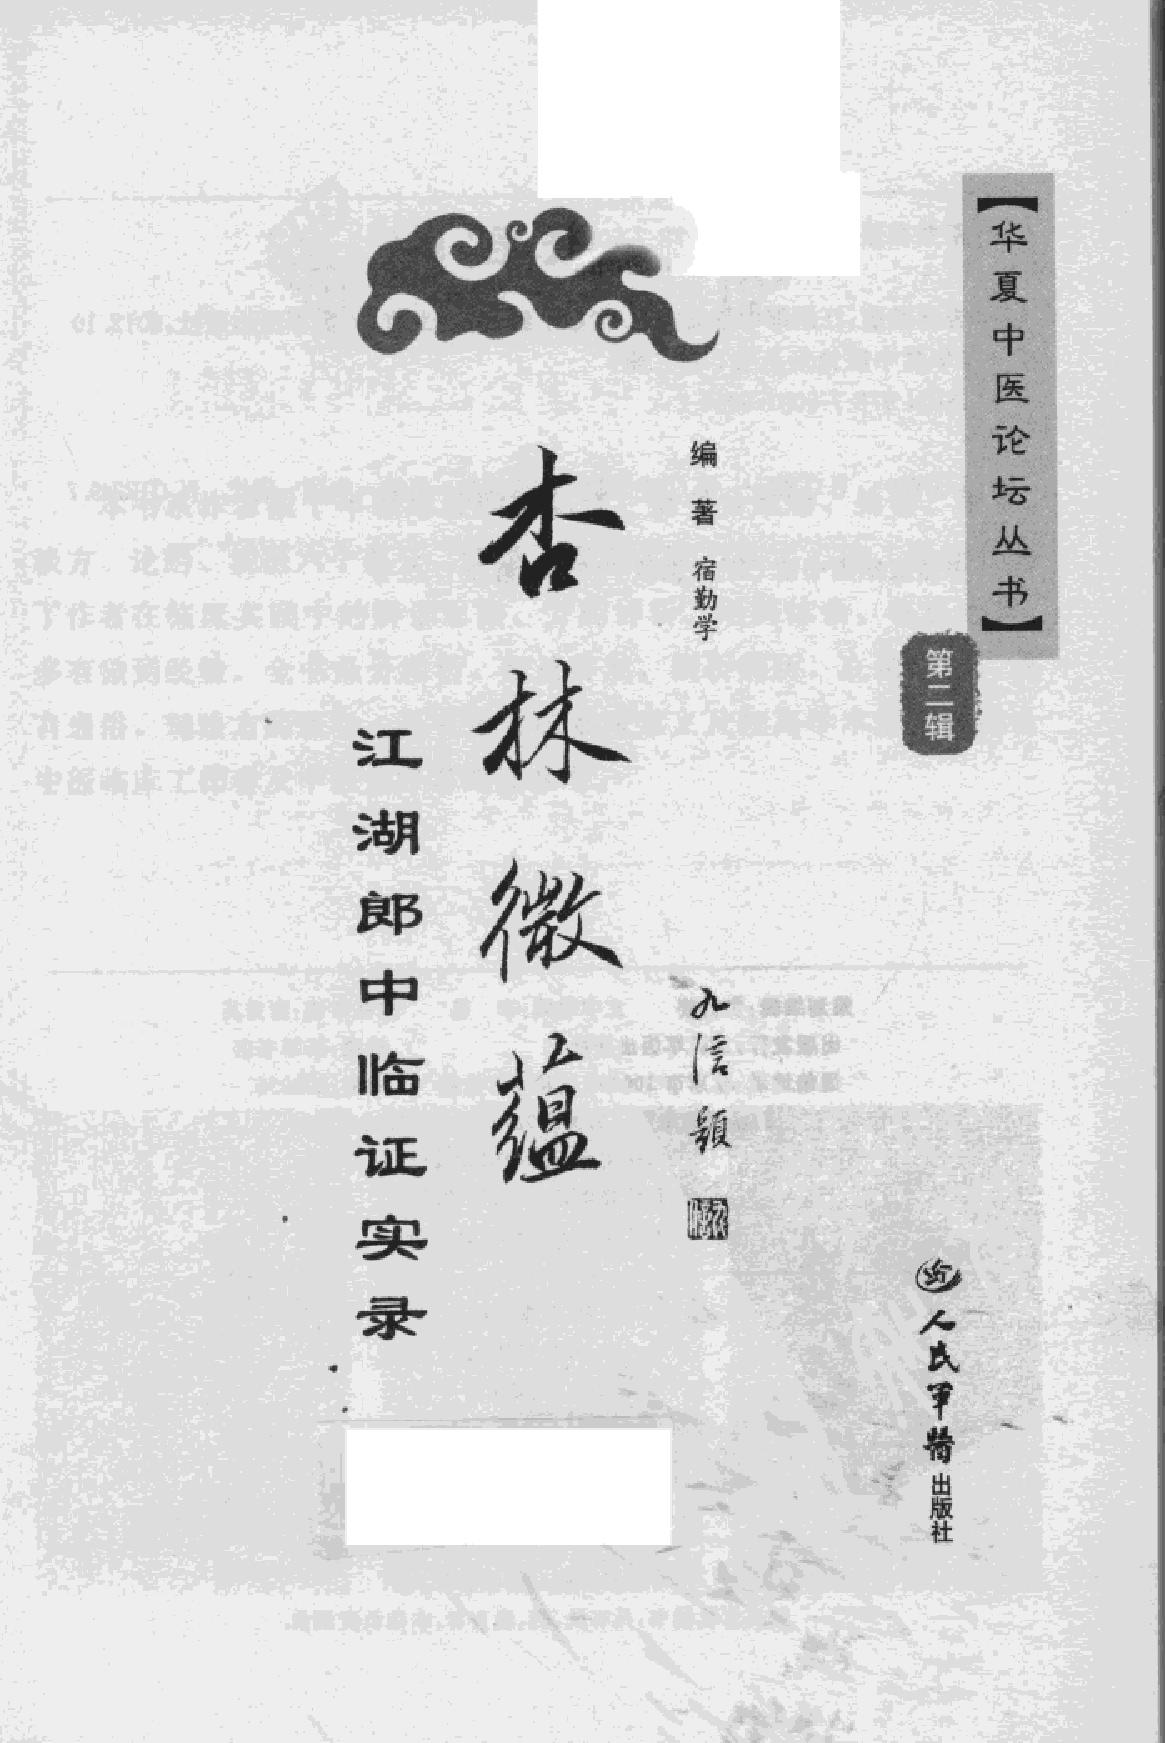 【华夏中医论坛丛书】
第二辑
编著 宿勤学
杏林微蕴
九信题
江湖郎中临证实录
人民军医出版社